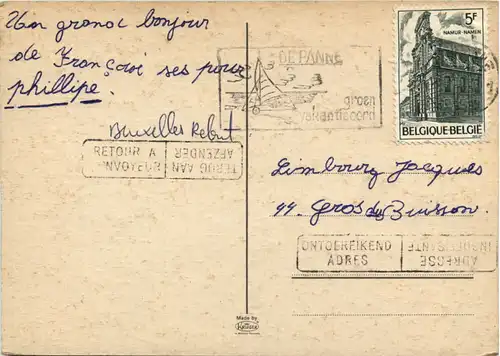 un grand bonjour
de Françoi ses pour
phillipe.
Bruxelles Rebut
RETOUR A
ENVOYEUR
TERUG AAN
AFZENDER
DE PANNE
groen
vakantieoord
5F
NAMUR-NAMEN
BELGIQUE-BELGIE
Limbourg Jacques
44 Gros du Buisson
ONTOEREIKEND
ADRES
ADRESSE
INSUFFISANTE
Made by
KRÜGER